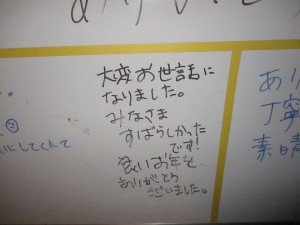 大変お世話に
なりました。
みなさま
すばらしかった
です!
良いお年を
ありがとう
ございました。
にしてくれて
あり
丁寧